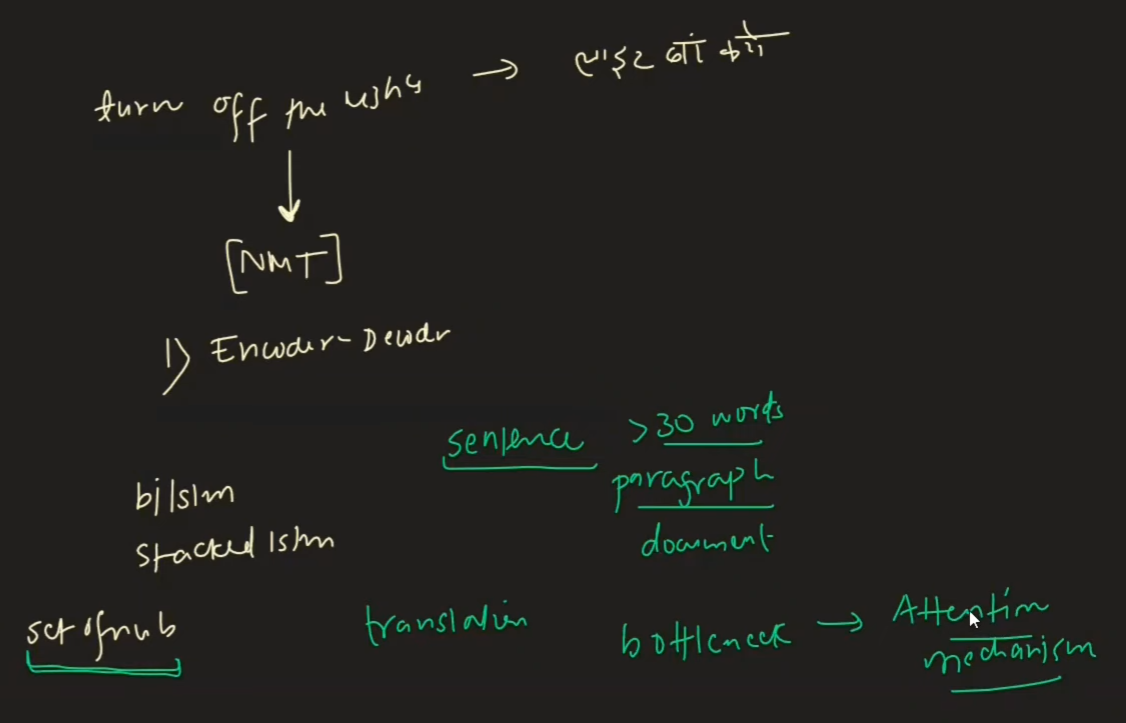 turn off the lights → लाइट को बंद
[NMT]
1) Encoder-Decoder
sentence >30 words
paragraph
document
bilstm
stacked lstm
set of numb
translation
bottleneck → Attention mechanism